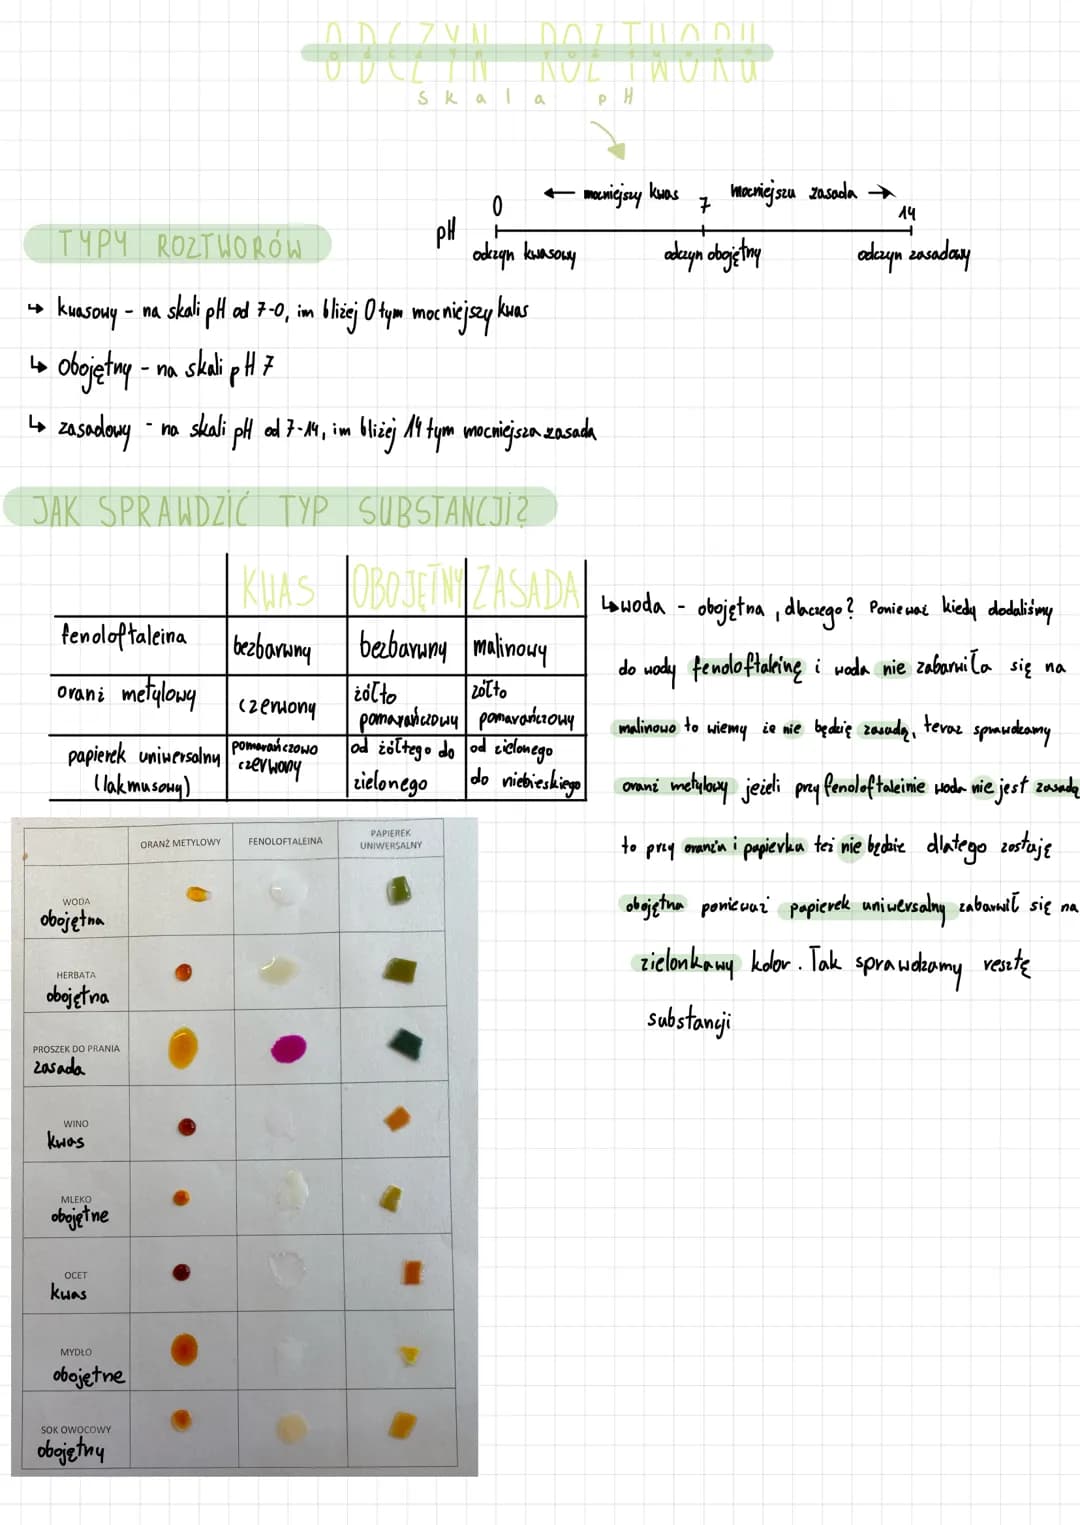 ODCZYN ROZTWORU
skala pH
← mocniejszy kwas mocniejsza zasada →
pH 0 7 14
odczyn kwasowy odczyn obojętny odczyn zasadowy
TYPY ROZTWORÓW
↳ kwasowy - na skali pH od 7-0, im bliżej 0 tym mocniejszy kwas
↳ obojętny - na skali pH 7
↳ zasadowy - na skali pH od 7-14, im bliżej 14 tym mocniejsza zasada
JAK SPRAWDZIĆ TYP SUBSTANCJI?
KWAS OBOJĘTNY ZASADA
fenoloftaleina bezbarwny bezbarwny malinowy
oranż metylowy czerwony żółto pomarańczowy żółto pomarańczowy
papierek uniwersalny (lakmusowy) pomarańczowo czerwony od żółtego do zielonego od zielonego do niebieskiego
↳ woda - obojętna, dlaczego? Ponieważ kiedy dodaliśmy
do wody fenoloftaleinę i woda nie zabarwiła się na
malinowo to wiemy że nie będzie zasadą, teraz sprawdzamy
oranż metylowy jeżeli przy fenoloftaleinie woda nie jest zasadą
to przy oranżu i papierku też nie będzie dlatego zostaję
obojętna ponieważ papierek uniwersalny zabarwił się na
zielonkawy kolor. Tak sprawdzamy resztę
substancji
ORANŻ METYLOWY FENOLOFTALEINA PAPIEREK
UNIWERSALNY
WODA
obojętna
HERBATA
obojętna
PROSZEK DO PRANIA
zasada
WINO
kwas
MLEKO
obojętne
OCET
kwas
MYDŁO
obojętne
SOK OWOCOWY
obojętny